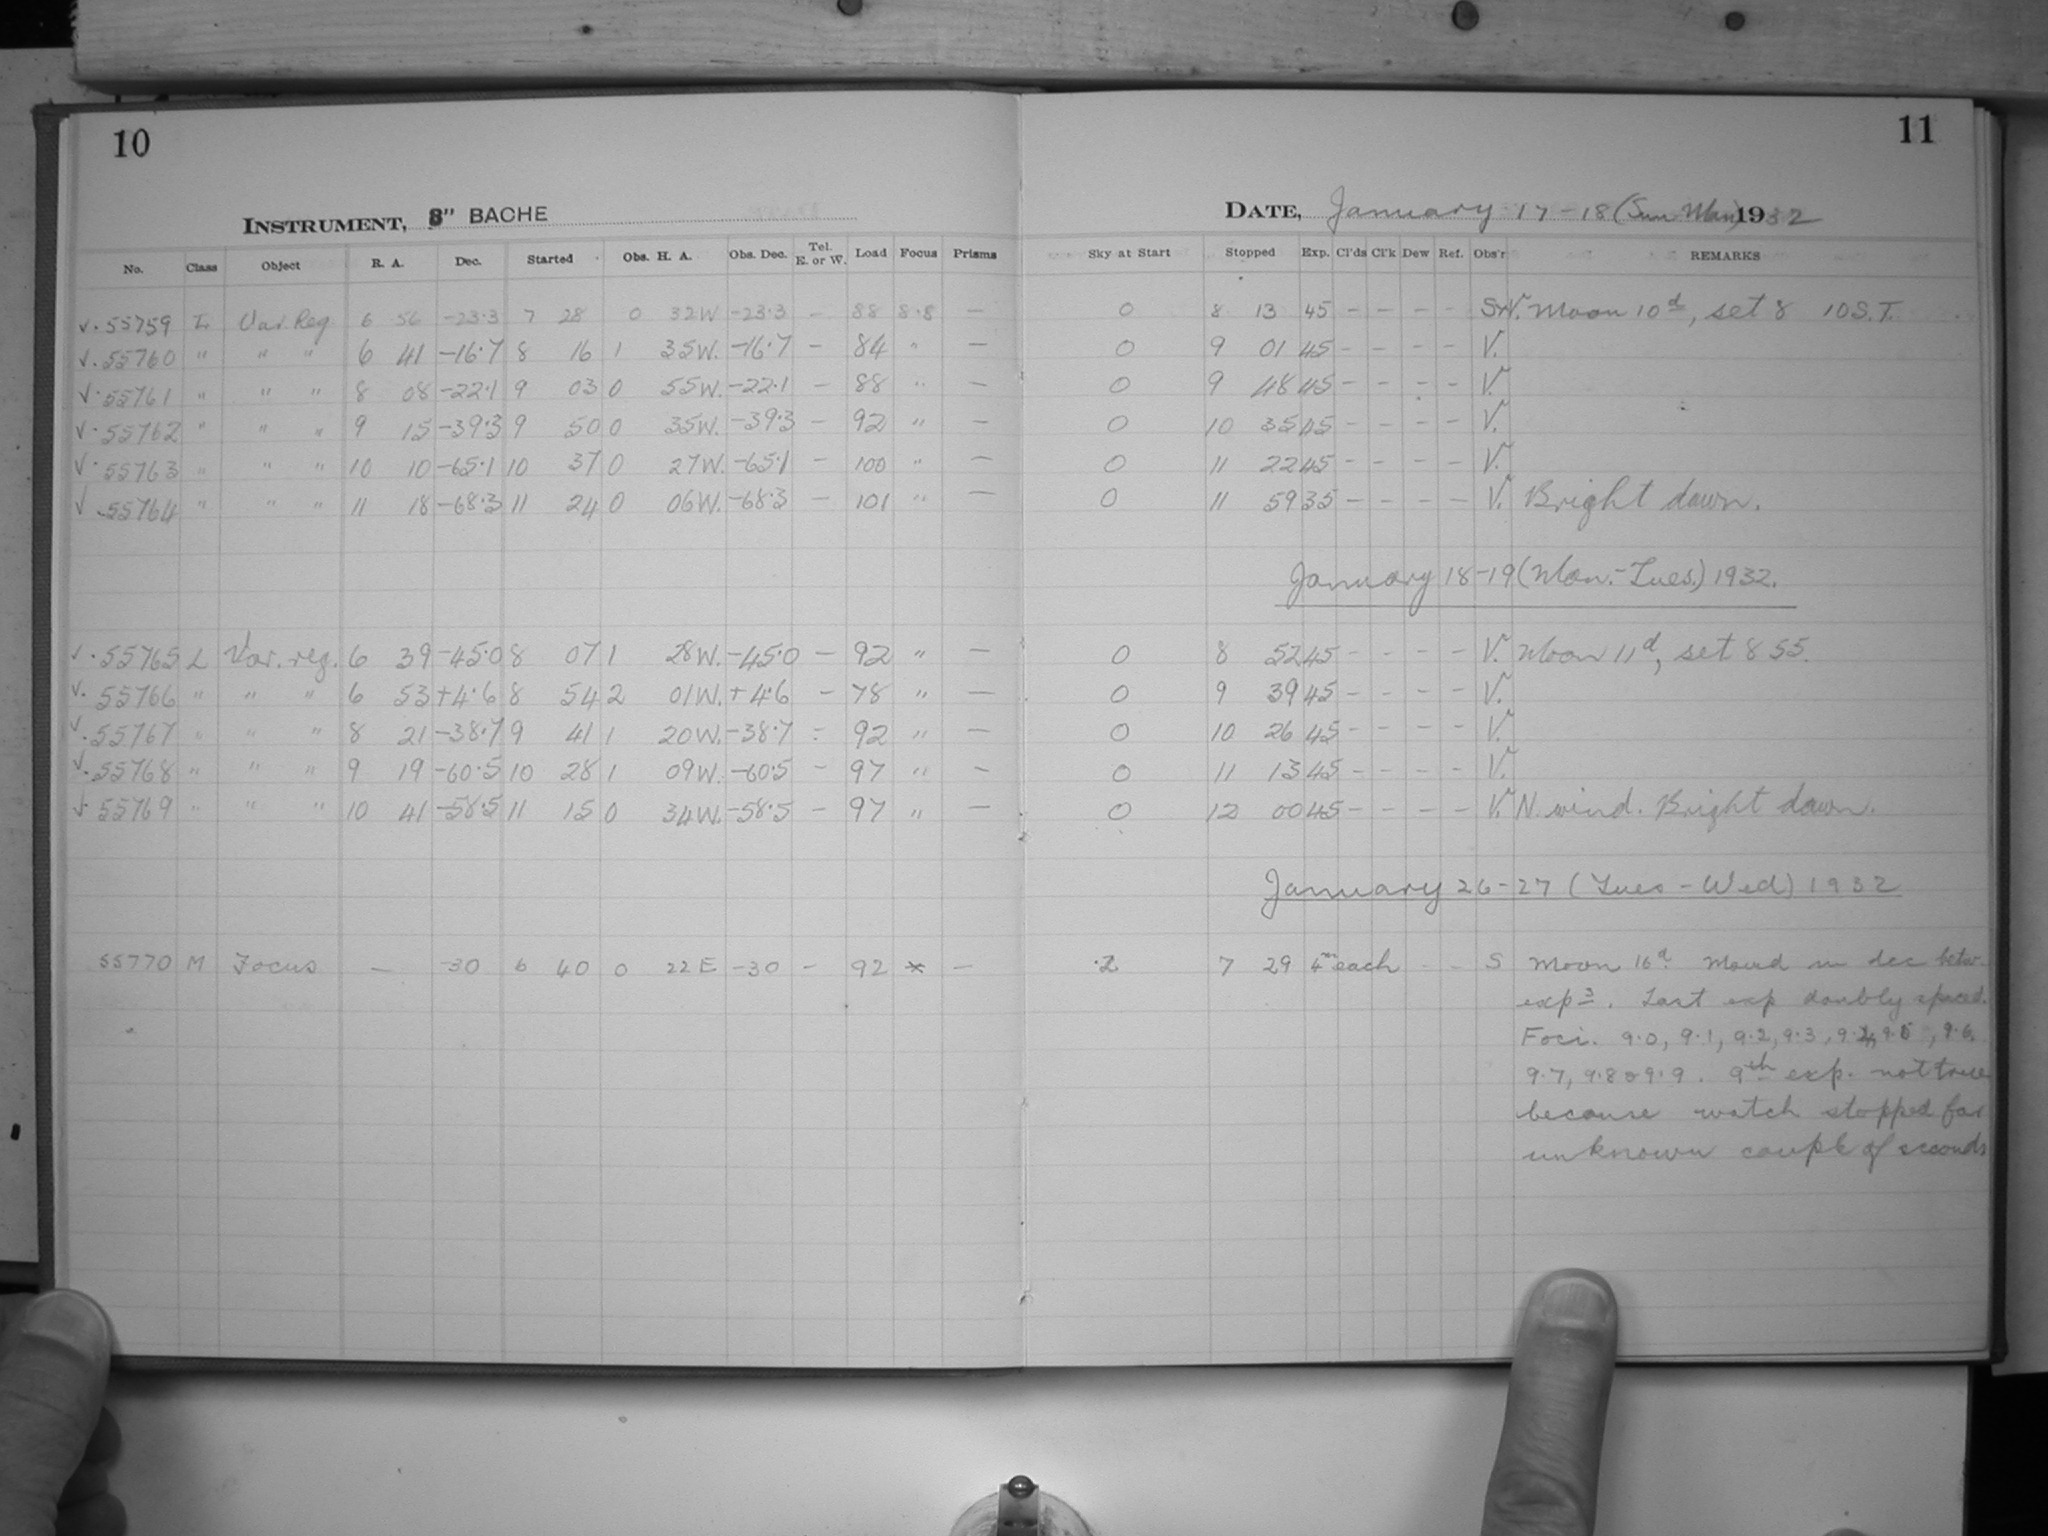 10
INSTRUMENT, 8" BACHE
No. Class Object R. A. Dec. Started Obs. H. A. Obs. Dec. Tel. E. or W. Load Focus Prisms
√. 55759 L Var. Reg 6 56 -23.3 7 28 0 32W -23.3 - 88 8.8 —
√. 55760 " " " 6 41 -16.7 8 16 1 35W. -16.7 - 84 " —
√. 55761 " " " 8 08 -22.1 9 03 0 55W. -22.1 - 88 " —
√. 55762 " " " 9 15 -39.3 9 50 0 35W. -39.3 - 92 " —
√. 55763 " " " 10 10 -65.1 10 37 0 27W. -65.1 - 100 " —
√. 55764 " " " 11 18 -68.3 11 24 0 06W. -68.3 - 101 " —
√. 55765 L Var. reg. 6 39 -45.0 8 07 1 28W. -45.0 - 92 " —
√. 55766 " " " 6 53 +4.6 8 54 2 01W. +4.6 - 78 " —
√. 55767 " " " 8 21 -38.7 9 41 1 20W. -38.7 - 92 " —
√. 55768 " " " 9 19 -60.5 10 28 1 09W. -60.5 - 97 " —
√. 55769 " " " 10 41 -58.5 11 15 0 34W. -58.5 - 97 " —
55770 M Focus — -30 6 40 0 22E -30 - 92 * —
11
DATE, January 17-18 (Sun-Mon) 1932
Sky at Start Stopped Exp. Cl'ds Cl'k Dew Ref. Obs'r REMARKS
0 8 13 45 - - - - S+V. Moon 10d, set 8 10 S.T.
0 9 01 45 - - - - V.
0 9 48 45 - - - - V.
0 10 35 45 - - - - V.
0 11 22 45 - - - - V.
0 11 59 35 - - - - V. Bright dawn.
January 18-19 (Mon.-Tues.) 1932.
0 8 52 45 - - - - V. Moon 11d, set 8 55.
0 9 39 45 - - - - V.
0 10 26 45 - - - - V.
0 11 13 45 - - - - V.
0 12 00 45 - - - - V. N. wind. Bright dawn.
January 26-27 (Tues - Wed) 1932
2 7 29 4m each - - S Moon 16d. Moved in dec betw.
exps. Last exp doubly spaced.
Foci. 9.0, 9.1, 9.2, 9.3, 9.4, 9.5, 9.6,
9.7, 9.8 & 9.9. 9th exp. not true
because watch stopped for
unknown couple of seconds